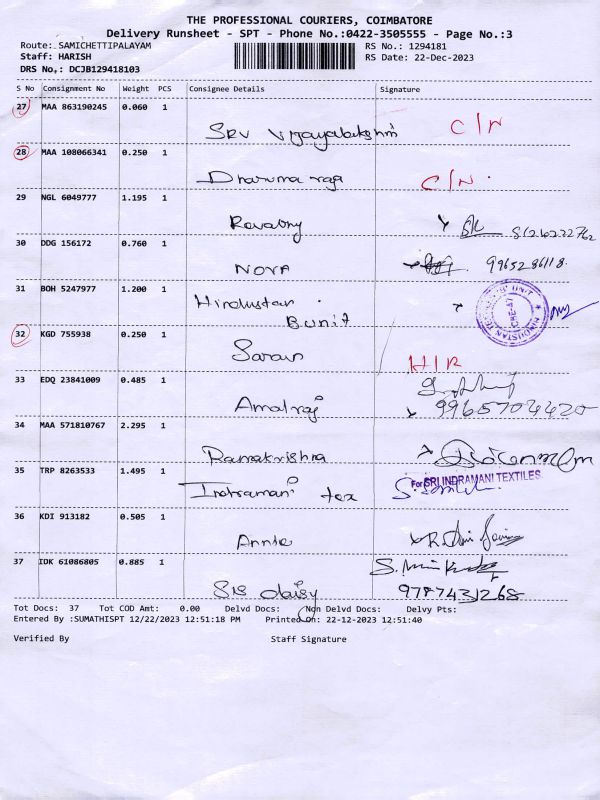 THE PROFESSIONAL COURIERS, COIMBATORE
Delivery Runsheet - SPT - Phone No.:0422-3505555 - Page No.:3
Route: SAMICHETTIPALAYAM RS No.: 1294181
Staff: HARISH RS Date: 22-Dec-2023
DRS No,: DCJB129418103
S No Consignment No Weight PCS Consignee Details Signature
27 MAA 863190245 0.060 1
Sri Vijayalakshmi C/N
28 MAA 108066341 0.250 1
Dharuma raja C/N.
29 NGL 6049777 1.195 1
8126222762
30 DDG 156172 0.760 1
NOVA 9965286118.
31 BOH 5247977 1.200 1
Hindustan
Bunit
32 KGD 755938 0.250 1
Saran H/R
33 EDQ 23841009 0.485 1
Amalraj 9965704420
34 MAA 571810767 2.295 1
Ramakrishna
35 TRP 8263533 1.495 1
Indramani tex For SRI INDRAMANI TEXTILES.
36 KDI 913182 0.505 1
Annie
37 IDK 61086805 0.885 1
Sis daisy 9787431268
Tot Docs: 37 Tot COD Amt: 0.00 Delvd Docs: Non Delvd Docs: Delvy Pts:
Entered By :SUMATHISPT 12/22/2023 12:51:18 PM Printed On: 22-12-2023 12:51:40
Verified By Staff Signature